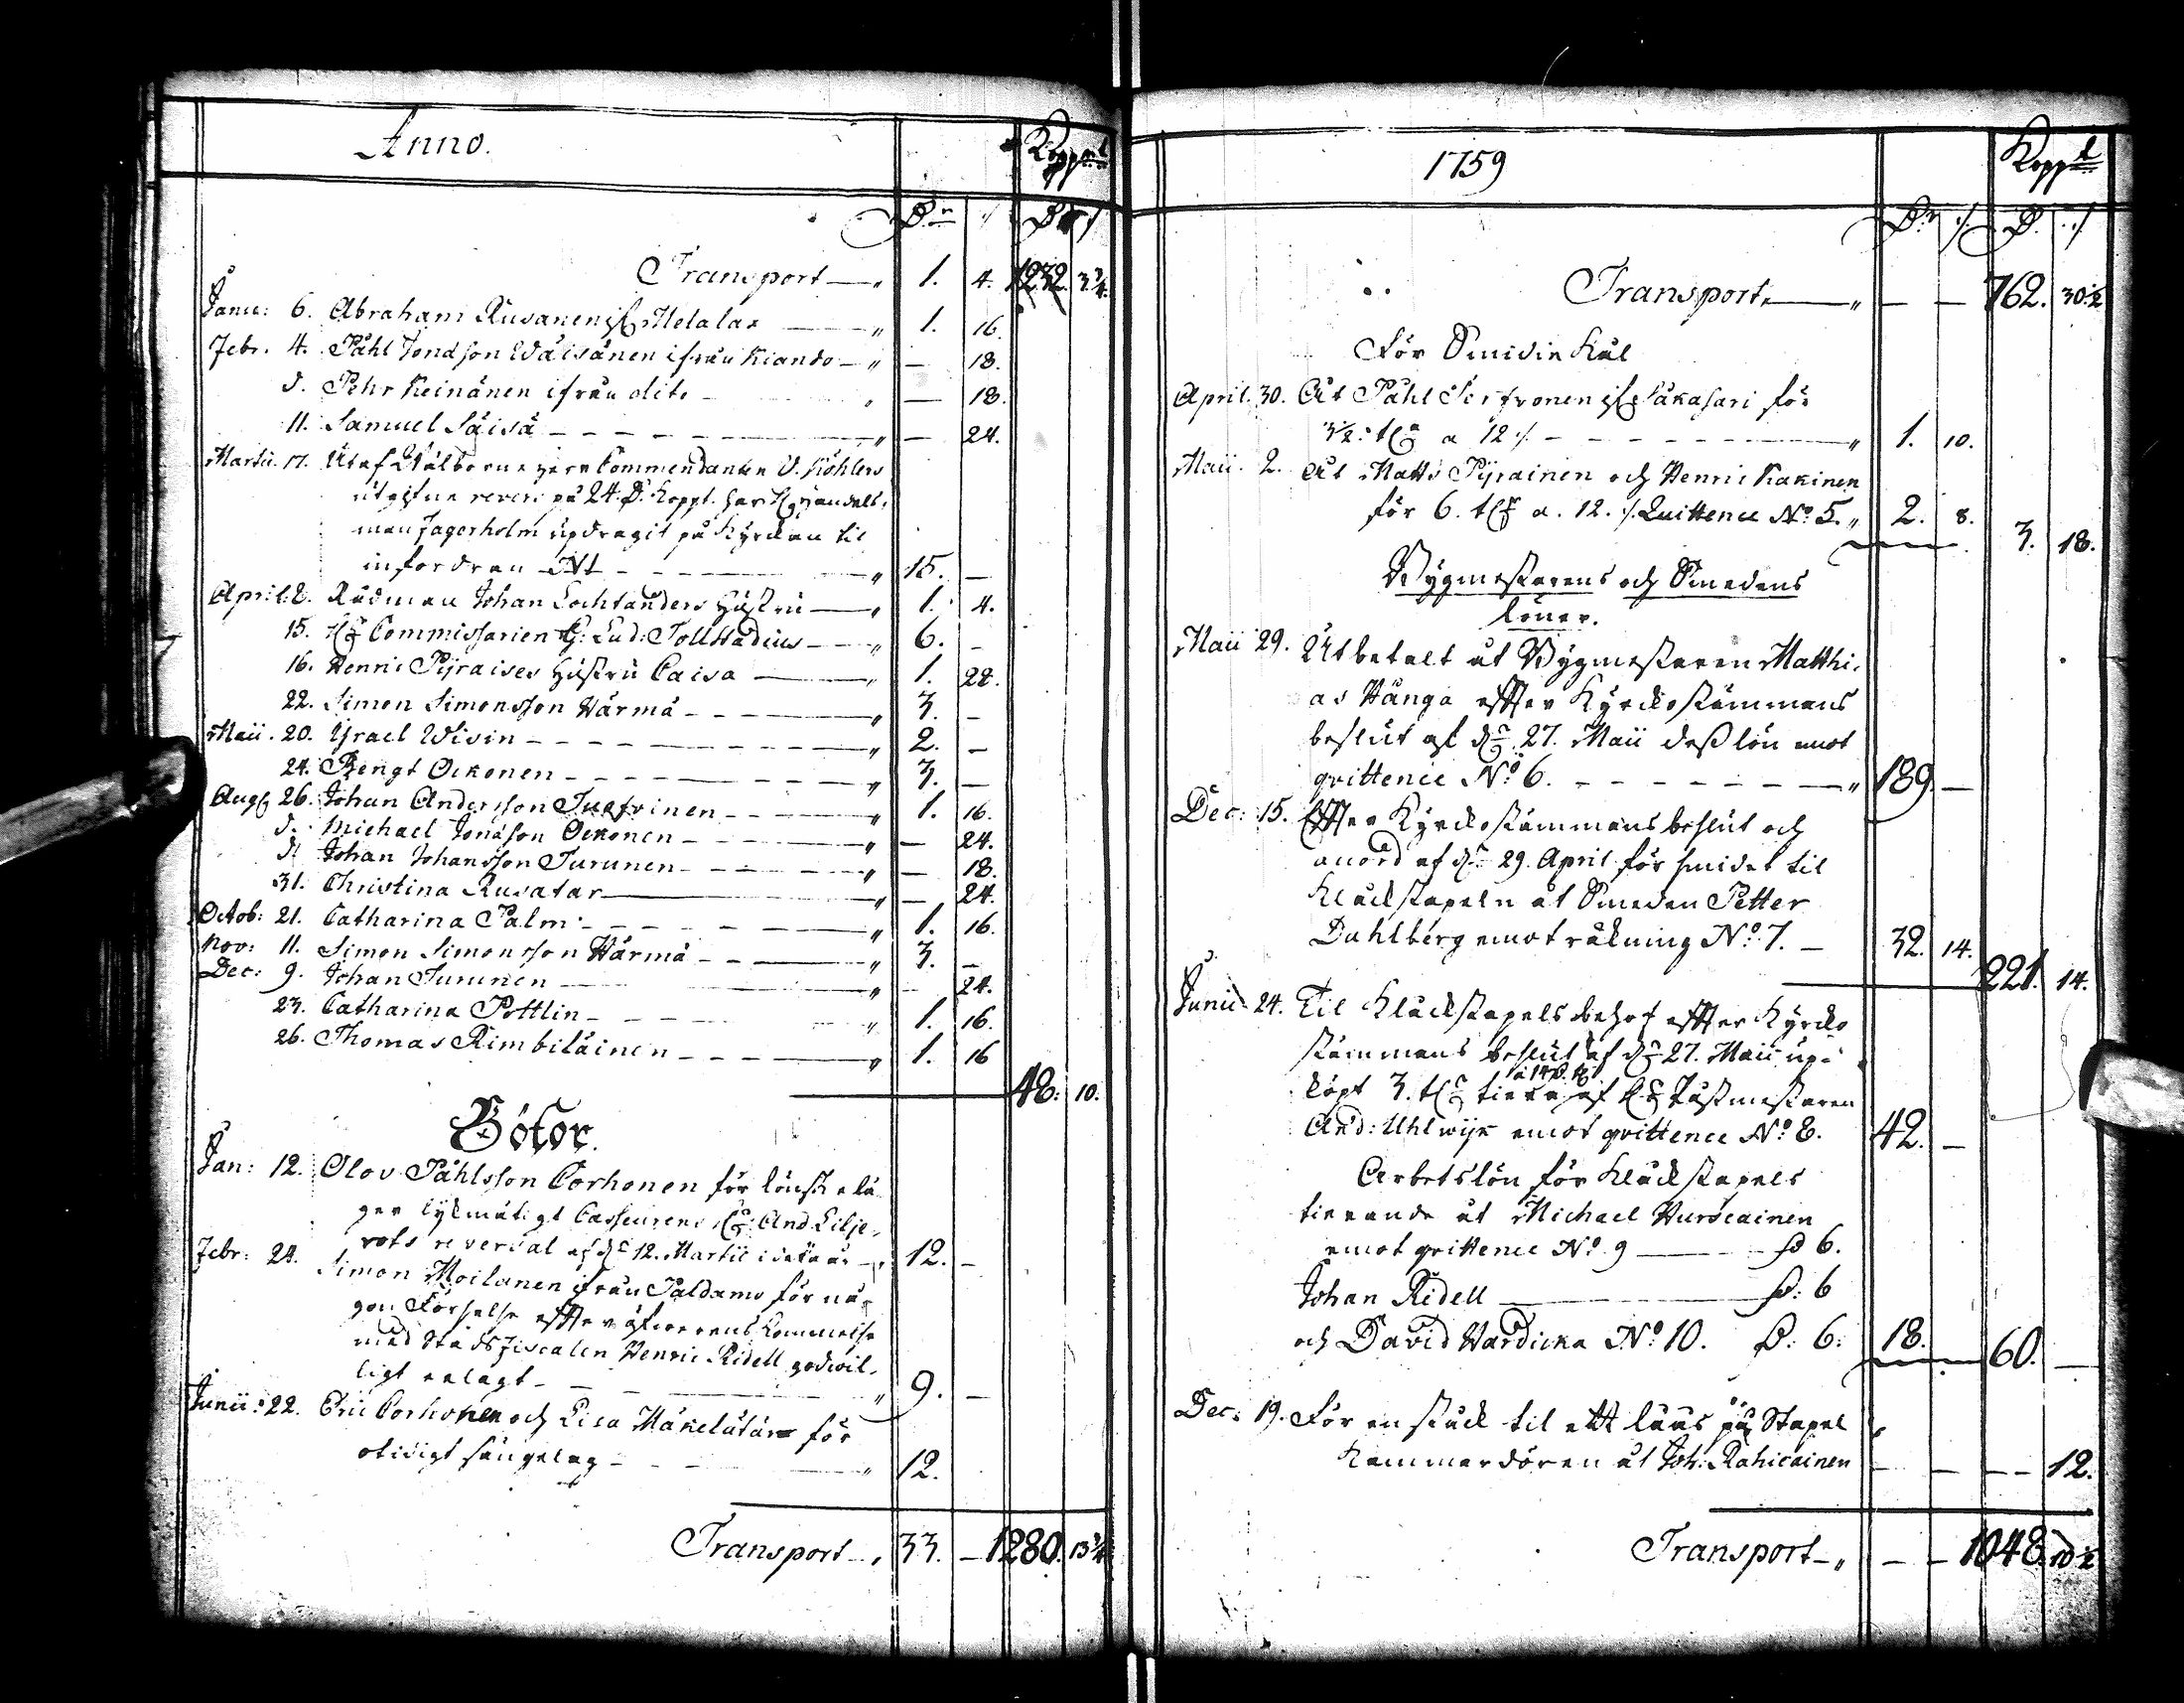 Anno. Koppmt
Dr ./. D ./.
Transport — „ 1. 4. 1232. 3 3/4.
Janu: 6. Abraham Rusanen ifr Melalax — „ 1. 16.
Febr. 4. Påhl Jondsson Wäisänen ifrån Kiando — „ — 18.
d. Pehr Keinänen ifrån dito — „ — 18.
11. Samuel Säisä — „ — 24.
Martii. 17. Utaf Wälborne herr Commendanten V. Köhlers
utgifne revers på 24. D. Koppt. har Hr Handels-
man Fagerholm updragit på Kyrckan til
infordran N1 — „ 15. —
April. 8. Rådman Johan Lochtanders Hustru — „ 1. 4.
15. Hr Commissarien G: Lud: Tollstadius — „ 6. —
16. Henric Pyraises Hustru Caisa — „ 1. 28.
22. Simon Simonsson Härmä — „ 3. —
Maii. 20. Ysrael Wisin — „ 2. —
24. Bengt Ockonen — „ 3. —
Aug 26. Johan Andersson Turfvinen — „ 1. 16.
d. Michael Jondson Ockonen — „ — 24.
d. Johan Johansson Turunen — „ — 18.
31. Christina Rusatar — „ — 24.
Octob: 21. Catharina Palm — „ 1. 16.
Nov: 11. Simon Simonsson Härmä — „ 3. —
Dec: 9. Johan Turunen — „ — 24.
23. Catharina Pottlin — „ 1. 16.
26. Thomas Rimbiläinen — „ 1. 16
48. 10.
Böter.
Jan: 12. Olov Påhlsson Corhonen för lönskelä-
ger lijkmätigt Casseurens Hr: And. Lilje-
rots reversal af d. 12. Martii — 12. —
Febr: 24. Simon Moilanen ifrån Paldamo för nå-
gon Förseelse effter öfwerenskommelse
med Stadsfiscalen Henric Ridell godwil-
ligt erlagt — „ 9. —
Junii: 22. Eric Corhonen och Lisa Mäkelätär för
otidigt sängelag — „ 12.
Transport — „ 33. — 1280. 13 3/4
1759 Koppmt
Dr ./. D. ./.
Transport — „ — — 762. 30 1/2
För Smidie Kål
April. 30. At Påhl Serfvonen ifr Säkasari för
3 1/2 tr a 12 ./. — „ 1. 10.
Maii. 2. At Matts Pyrainen och Henric Kakinen
för 6. tr a. 12. ./. Quittence No. 5. „ 2. 8. 3. 18.
Bygmestarens och Smedens
löner.
Maii 29. Utbetalt åt Bygmestaren Matthi-
as Hånga effter Kyrckostämmans
beslut af d. 27. Maii dess lön emot
qvittence No. 6. — „ 189. —
Dec: 15. Effter Kyrckostämmans beslut och
anord af d. 29. April för smidet til
Kláckstapeln åt Smeden Petter
Dahlberg emot räkning No. 7. — 32. 14. 221. 14.
Junii 24. Til Klåckstapelsbehof effter Kyrcko
stämmans beslut af d. 27. Maii up-
köpt 3. tr tiera à 14 D. tr af Hr Tullmestaren
And: Uhlwijk emot qvittence No. 8. 42. —
Arbetslön för Klåckstapels
tierande åt Michael Hurscainen
emot qvittence No. 9 — D 6.
Johan Ridell — D: 6
och David Hardicka No. 10. D. 6. 18. 60. —
Dec: 19. För en stáck til ett låås på Stapel
Kammardören åt Joh: Rahicainen — — — 12.
Transport — „ — — 1048. 10 1/2